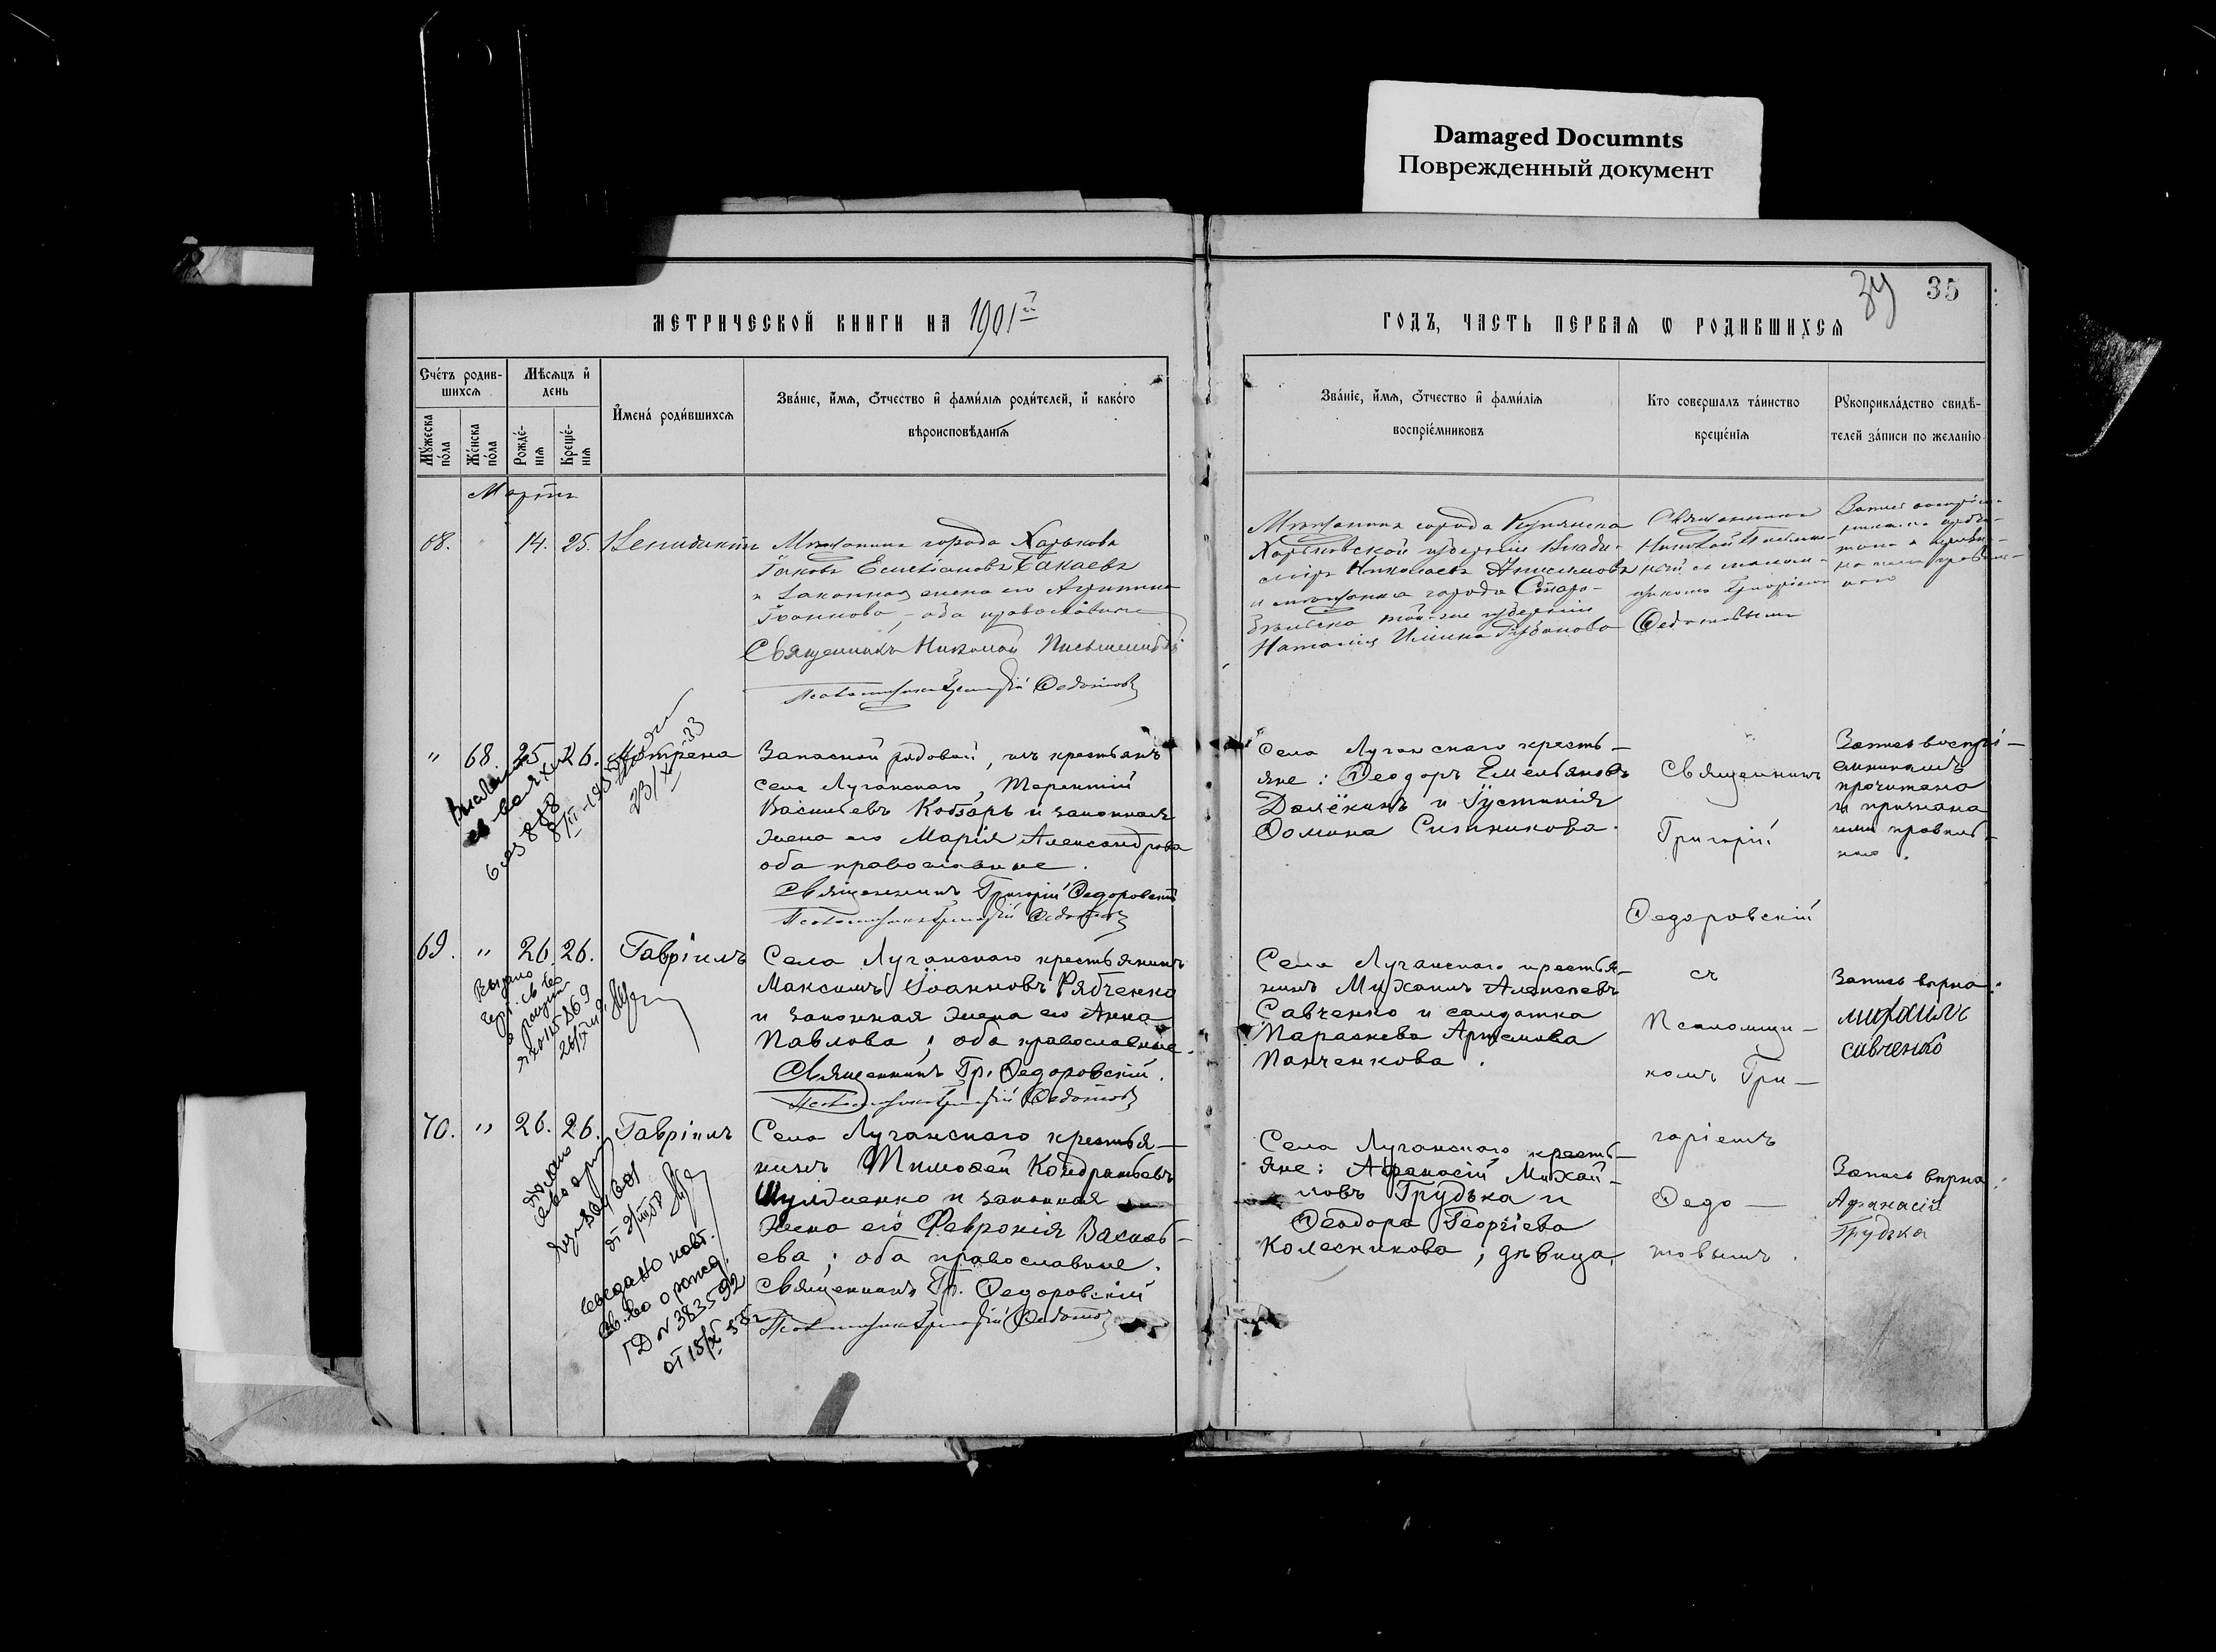 Damaged Documnts
Поврежденный документ
35
МЕТРИЧЕСКОЙ КНИГИ НА 1901й
ГОДЪ, ЧАСТЬ ПЕРВАЯ Ѡ РОДИВШИХСЯ
Счетъ родив-
шихся
Мѣсяцъ и
день
Мужеска
пола
Женска
пола
Рожде-
нія
Креще-
нія
Имена родившихся
Званіе, имя, отчество и фамилія родителей, и какого
вѣроисповѣданія
Званіе, имя, отчество и фамилія
воспріемниковъ
Кто совершалъ таинство
крещенія
Рукоприкладство свидѣ-
телей записи по желанію
Мартъ
68. 14. 25. Венидиктъ
Мѣщанинъ города Харькова
Іаковъ Емеліановъ Бакаевъ
и законная жена его
Іоаннова, оба православные
Священникъ Николай
Псаломщикъ Григорій Федотовъ
Мѣщанинъ города Купянска
Харьковской губерніи Влади-
міръ Николаевъ Анисимовъ
и мѣщанка города Старо-
бѣльска той-же губерніи
Наталія
Священникъ
Николай
Федотовымъ
" 68. 25 26. Матрена
Запасной рядовой, изъ крестьянъ
села Луганскаго, Терентій
Васильевъ Кобзарь и законная
жена его Марія Александрова
оба православные.
Священникъ Григорій Федоровскій
Псаломщикъ Григорій Федотовъ
Села Луганскаго кресть-
яне: Феодоръ Емельяновъ
Далёкинъ и Іустинія
Фомина Ситникова.
Священникъ
Григорій
Федоровскій
съ
Псаломщи-
комъ Гри-
горіемъ
Федо-
товымъ.
Запись воспрі-
емникамъ
прочитана
и признана
ими правиль-
ною.
69. " 26. 26. Гавріилъ
Села Луганскаго крестьянинъ
Максимъ Іоанновъ Рябченко
и законная жена его Анна
Павлова; оба православные.
Священникъ Гр. Федоровскій.
Псаломщикъ Григорій Федотовъ
Села Луганскаго крестья-
нинъ Михаилъ Алексѣевъ
Савченко и солдатка
Параскева Артемова
Панченкова.
Запись вѣрна:
михаилъ
савченко
70. " 26. 26. Гавріилъ
Села Луганскаго крестья-
нинъ Тимофей Кондратьевъ
и законная
жена его Февронія Василь-
ева; оба православные.
Священникъ Гр. Федоровскій
Псаломщикъ Григорій Федотовъ
Села Луганскаго кресть-
яне: Афанасій Михай-
ловъ Грудька и
Феодора Георгіева
Колесникова, дѣвица.
Запись вѣрна:
Афанасій
Грудька
выдано повт.
св.во о рожд.
ГД № 383592